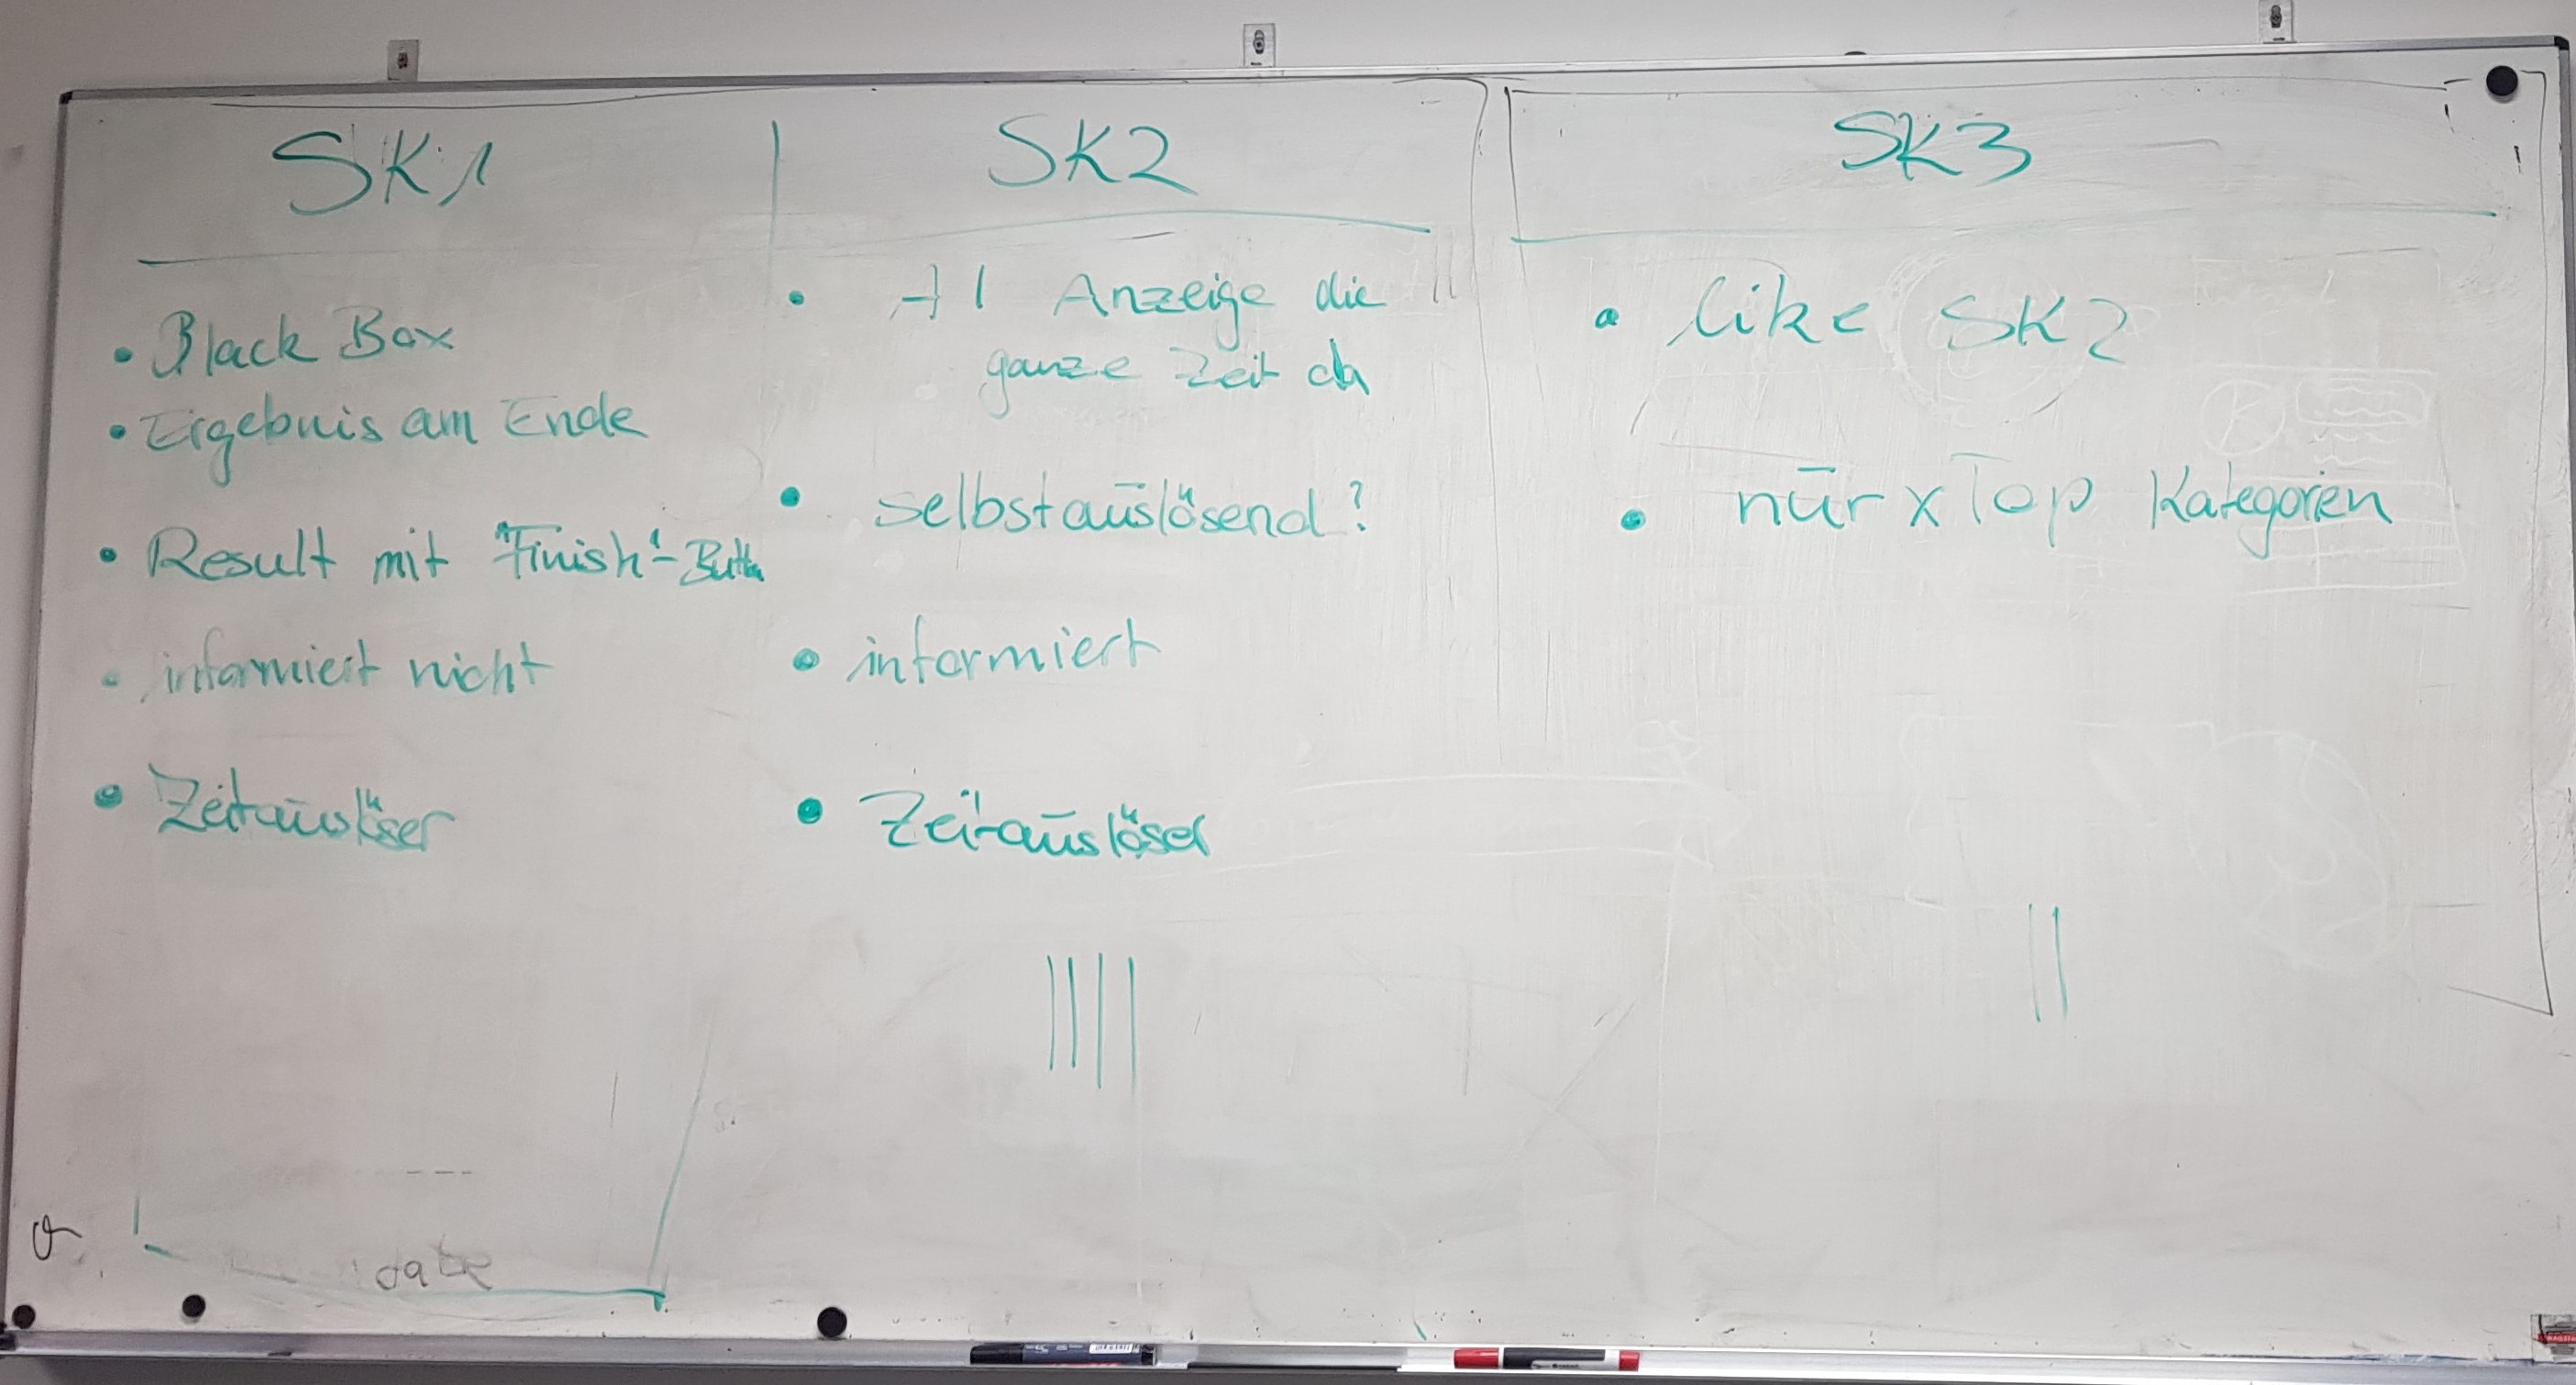 SK1
• Black Box
• Ergebnis am Ende
• Result mit "Finish"-Button
• informiert nicht
• Zeitauslöser
dabe
SK2
• AI Anzeige die
ganze Zeit da
• selbstauslösend?
• informiert
• Zeitauslöser
||||
SK3
• like SK2
• nur x Top Kategorien
||